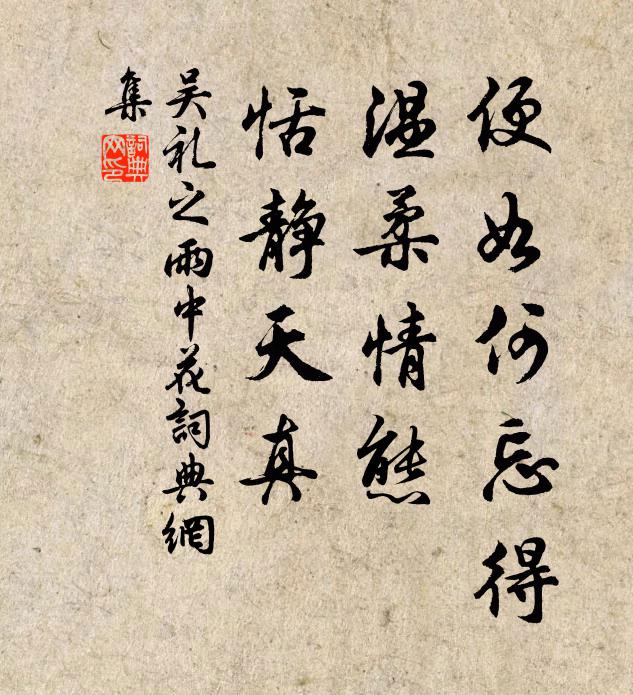 便如何忘得
温柔情態
恬静天真
吴礼之雨中花詞典網
集
詞典网印